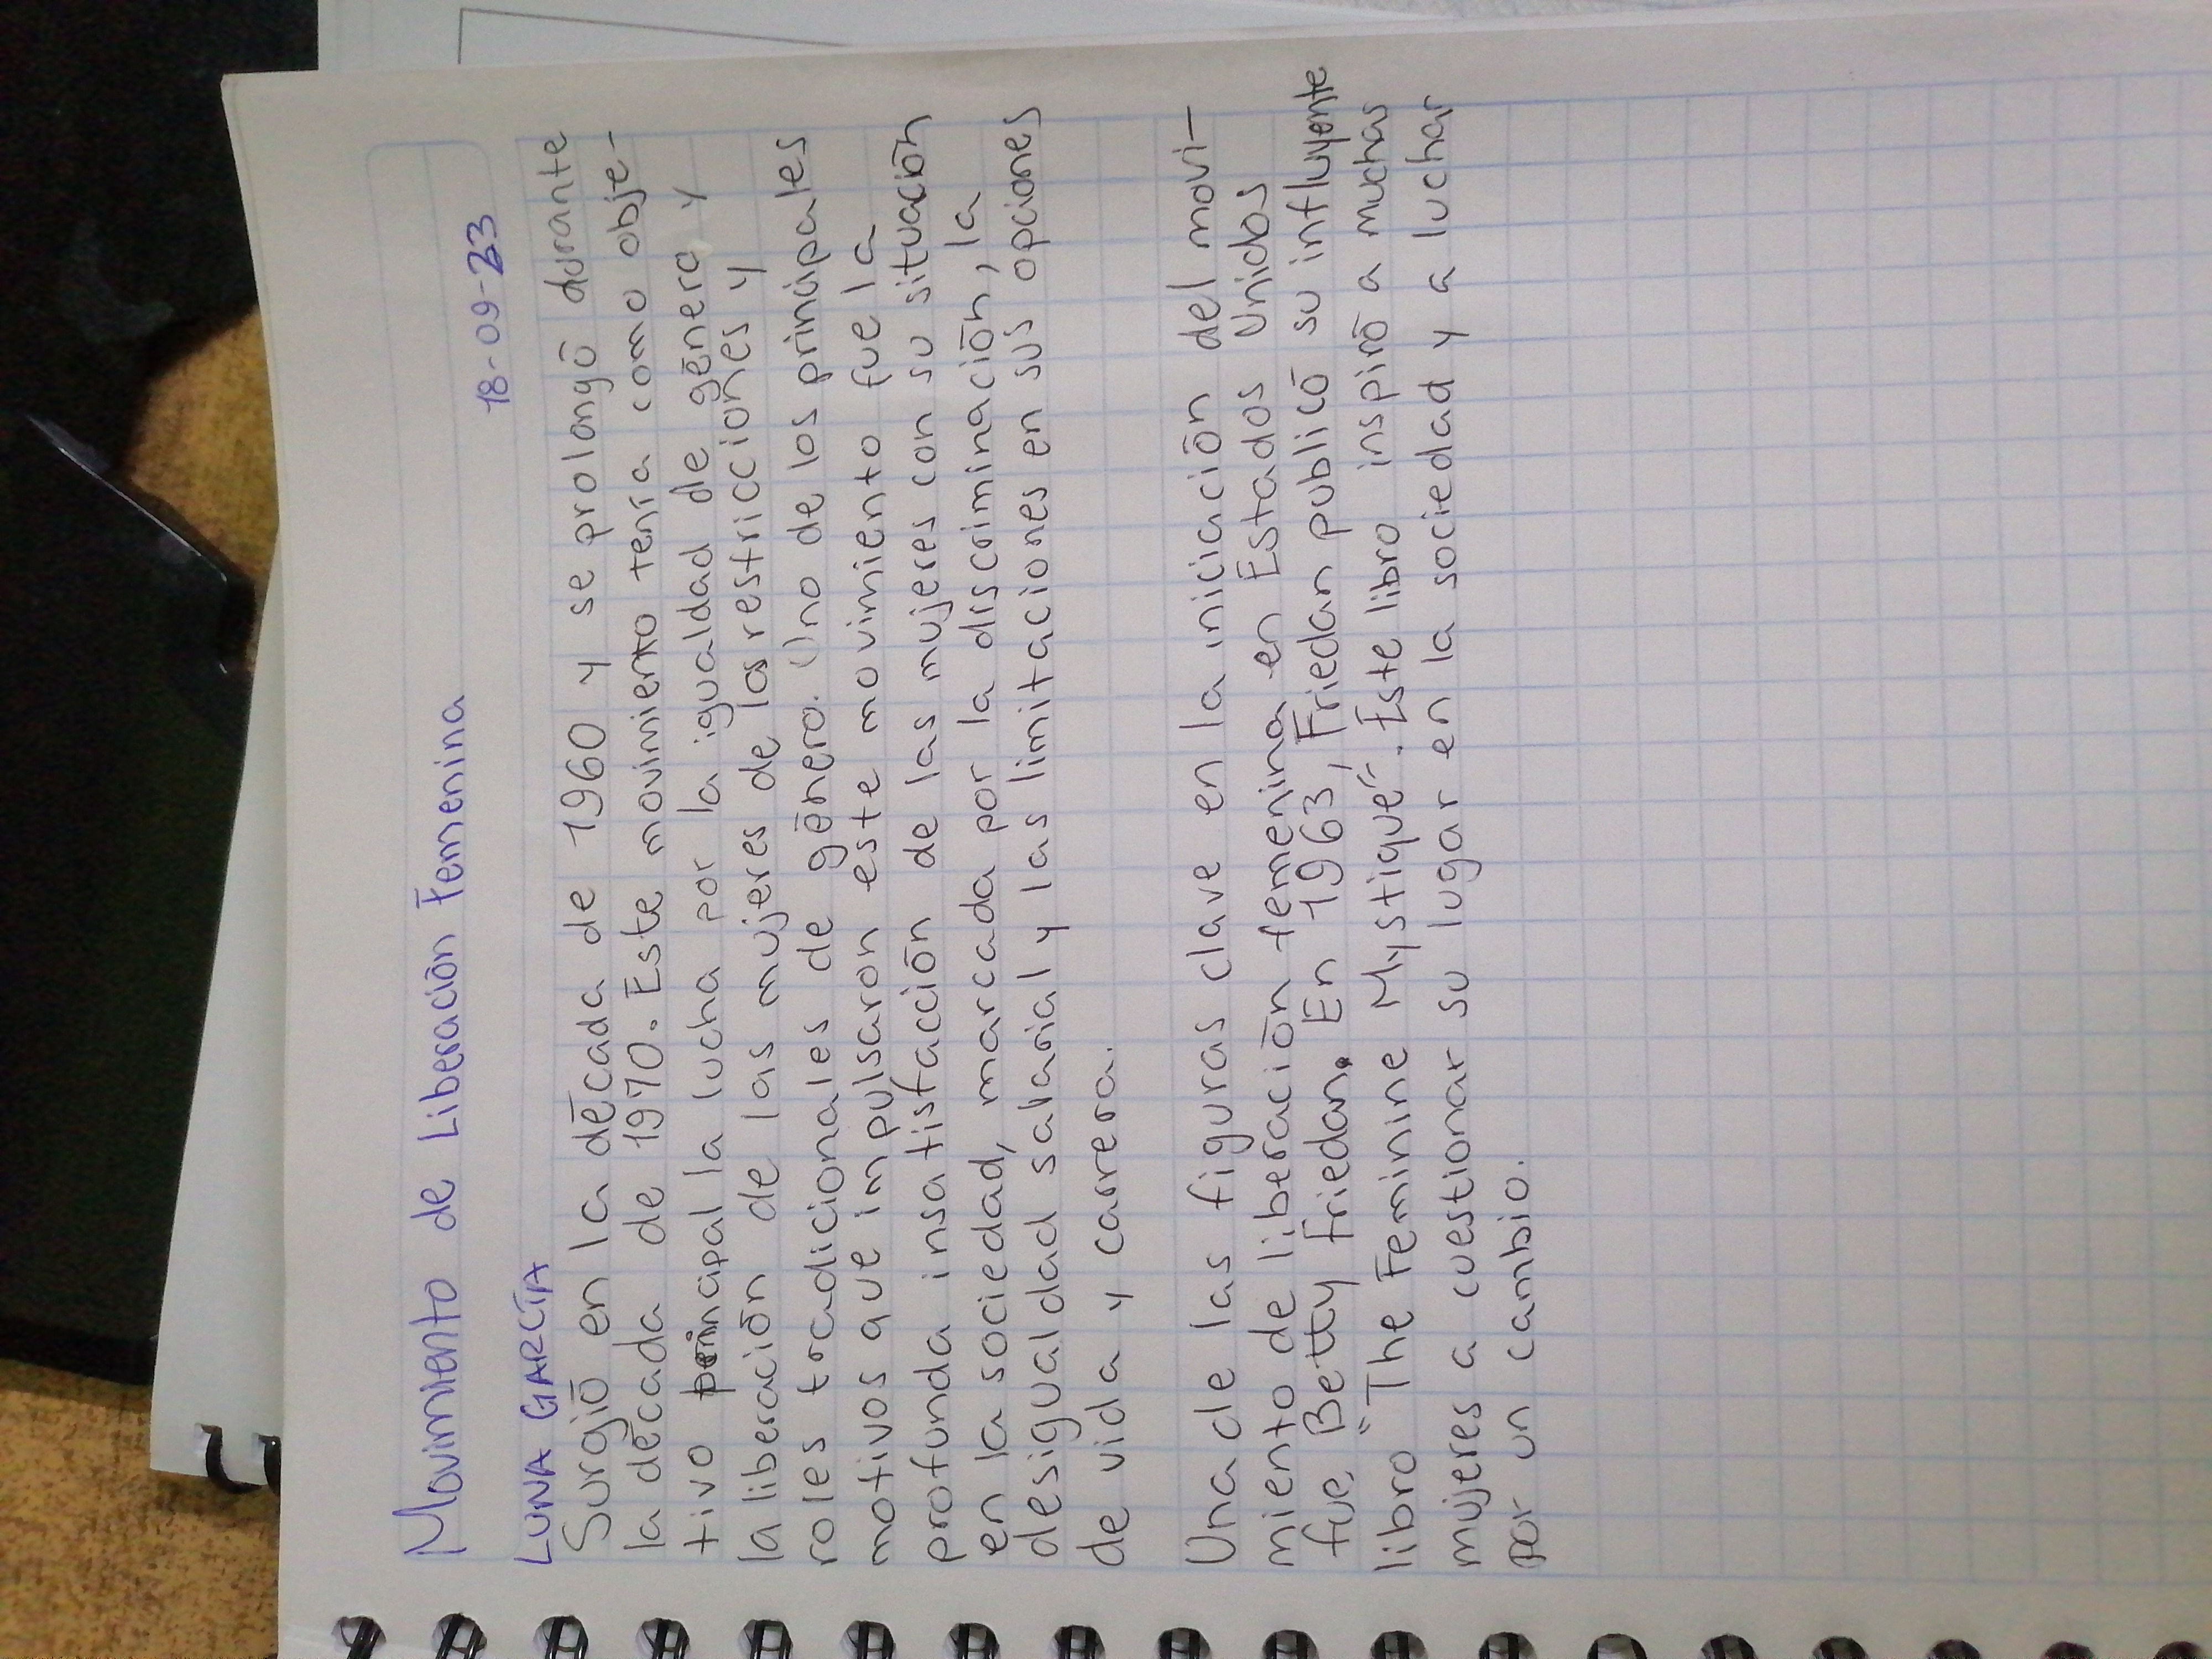 Movimiento de Liberación Femenina
18-09-23
LUNA GARCÍA
Surgió en la década de 1960 y se prolongó durante
la década de 1970. Este movimiento tenía como obje-
tivo principal la lucha por la igualdad de género y
la liberación de las mujeres de las restricciones y
roles tradicionales de género. Uno de los principales
motivos que impulsaron este movimiento fue la
profunda insatisfacción de las mujeres con su situación
en la sociedad, marcada por la discriminación, la
desigualdad salarial y las limitaciones en sus opciones
de vida y carrera.
Una de las figuras clave en la iniciación del movi-
miento de liberación femenina en Estados Unidos
fue, Betty Friedan. En 1963, Friedan publicó su influyente
libro "The Feminine Mystique". Este libro inspiró a muchas
mujeres a cuestionar su lugar en la sociedad y a luchar
por un cambio.